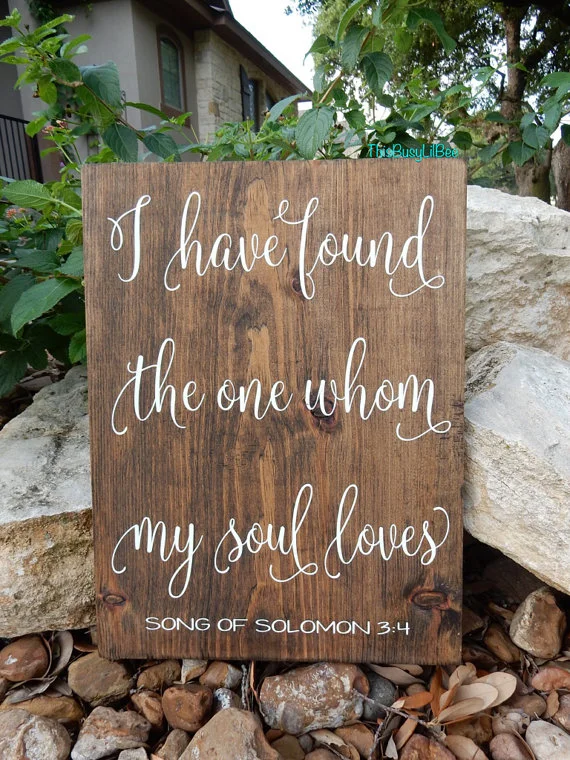 ThisBusyLilBee
I have found
the one whom
my soul loves
SONG OF SOLOMON 3:4